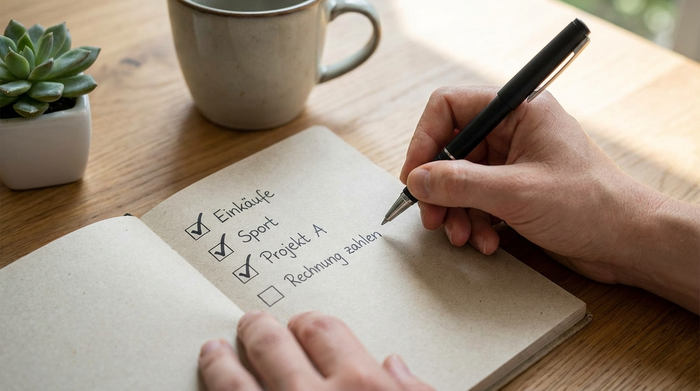 Einkäufe
Sport
Projekt A
Rechnung zahlen